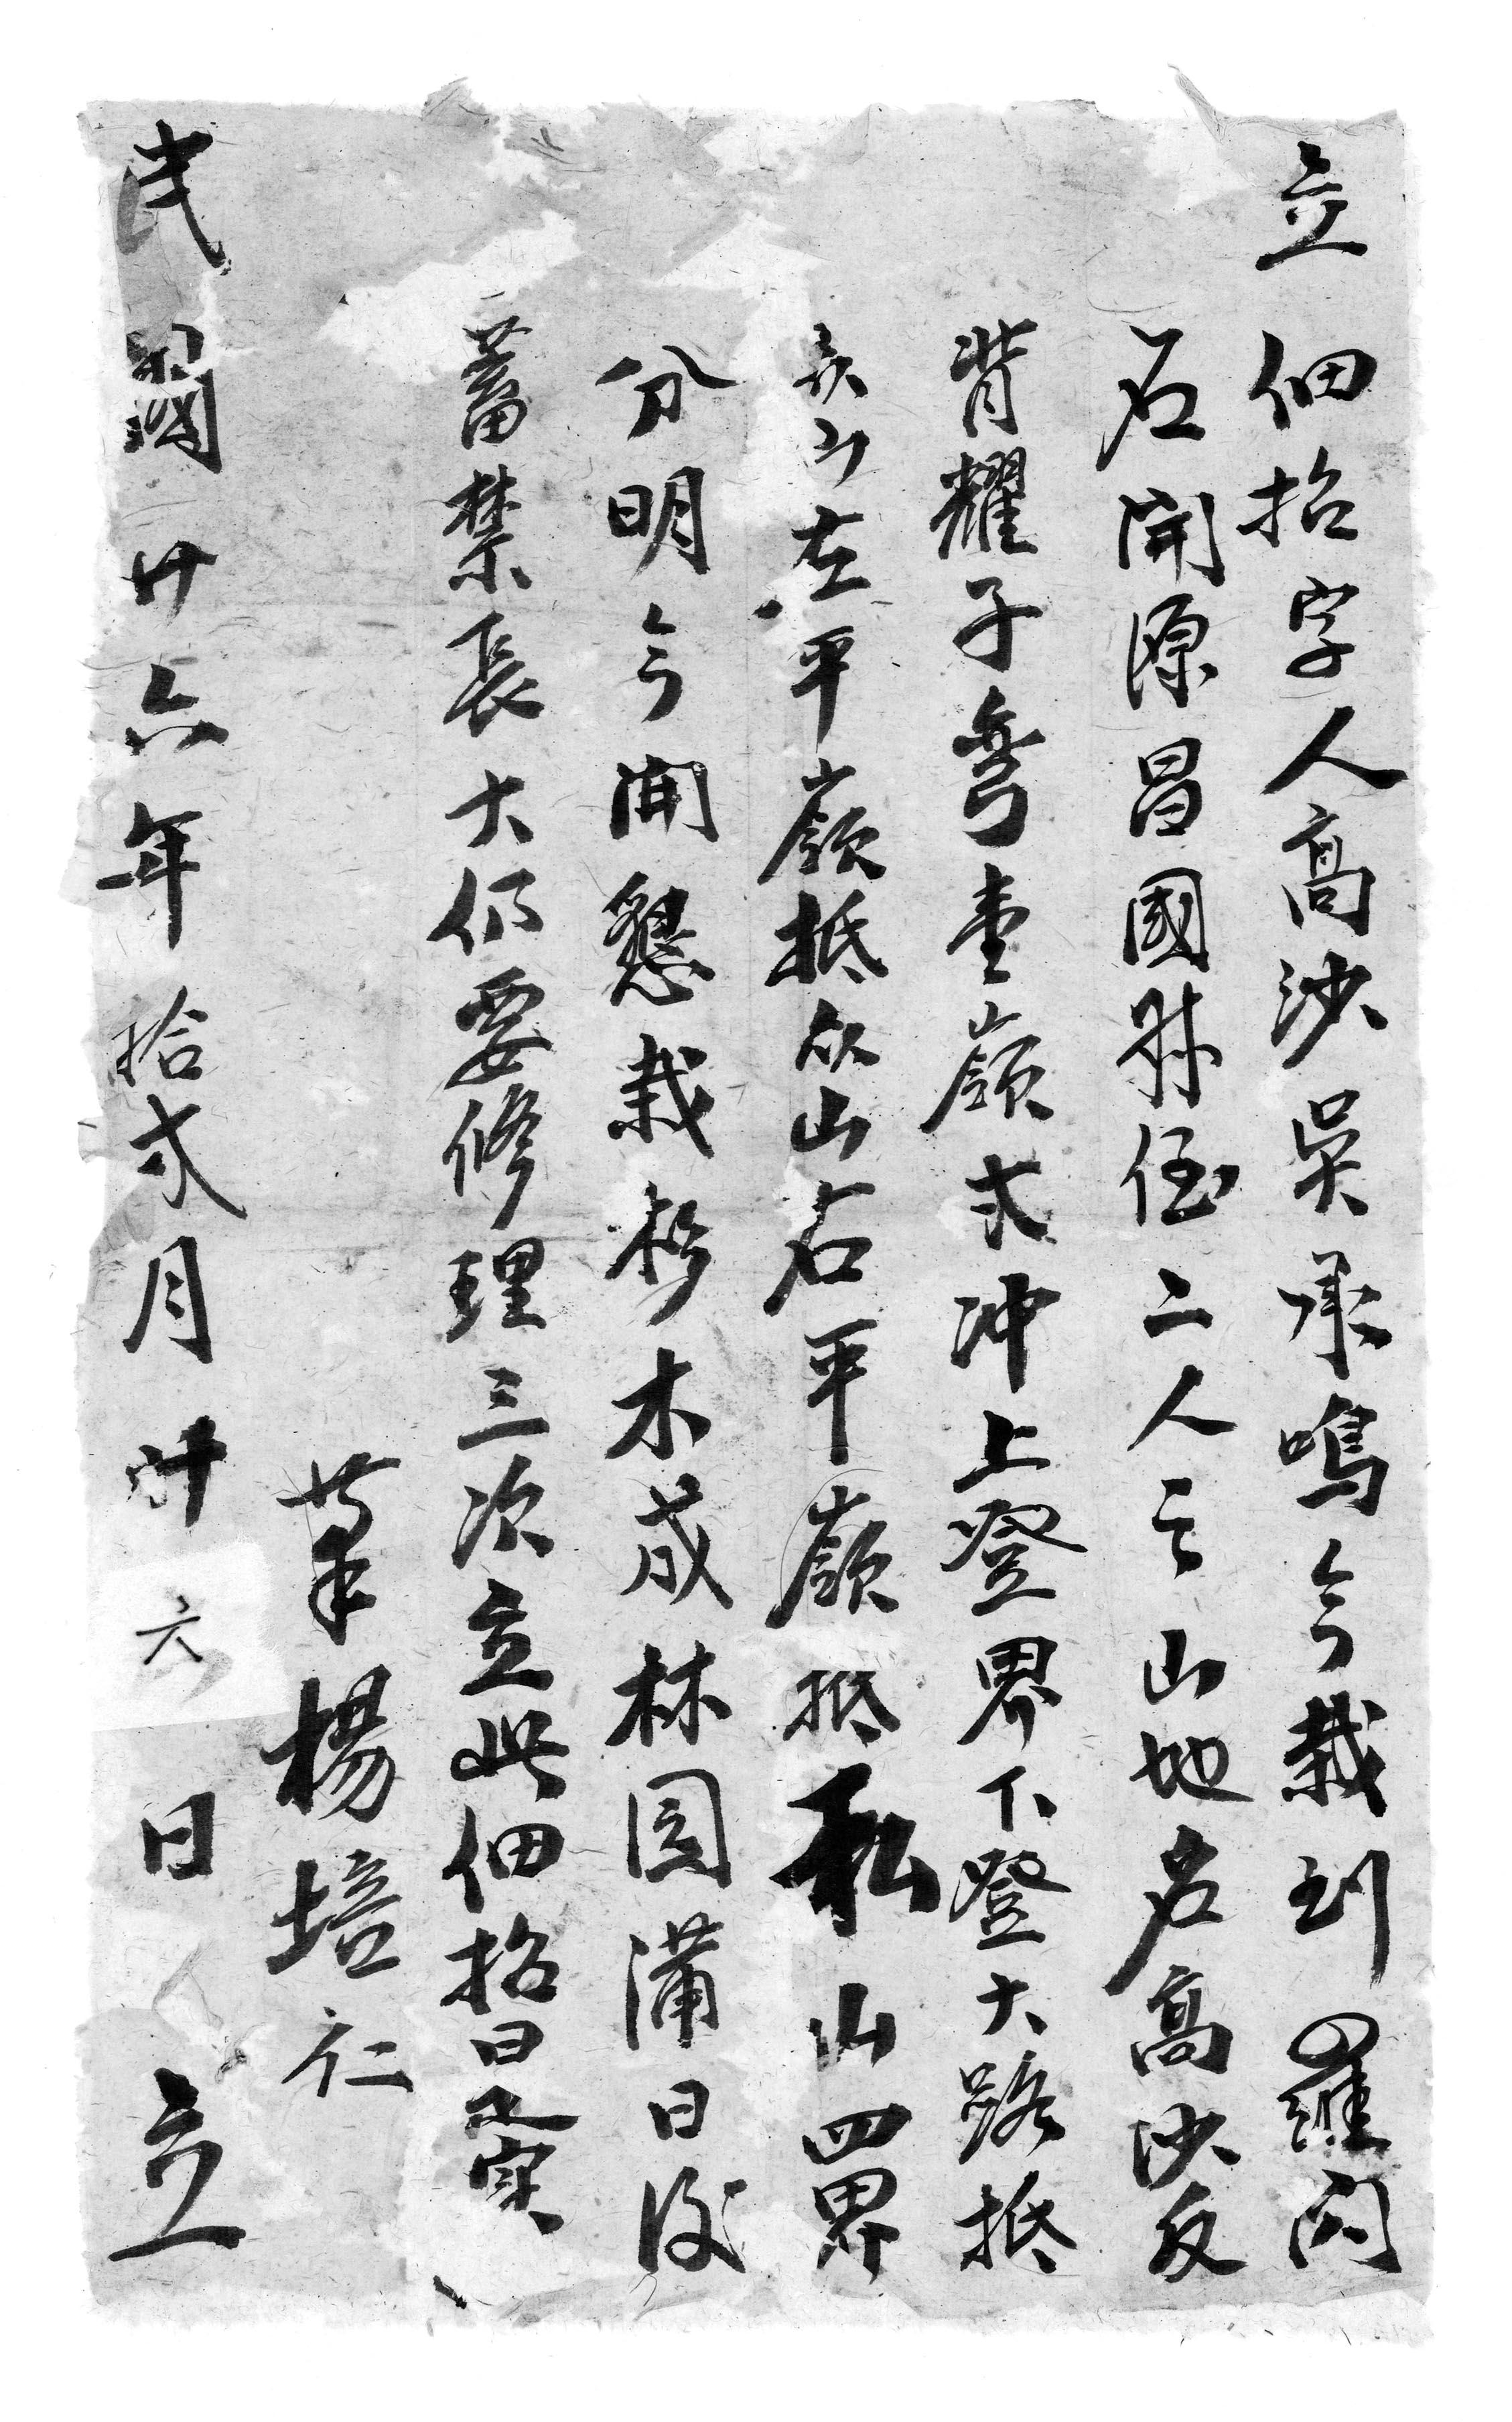 立佃招字人高沙吳承鳴今栽到羅開
石開源昌國財侄二人之山地名高沙反
背耀子彎壹嶺弍冲上登界下登大路抵
衆山左平嶺抵众山右平嶺抵私山四界
分明今開懇栽杉木成林园蒲日後
蓄禁長大仍要修理三次立此佃招日爲實
筆楊培仁
民國廿六年拾弍月廿六日立